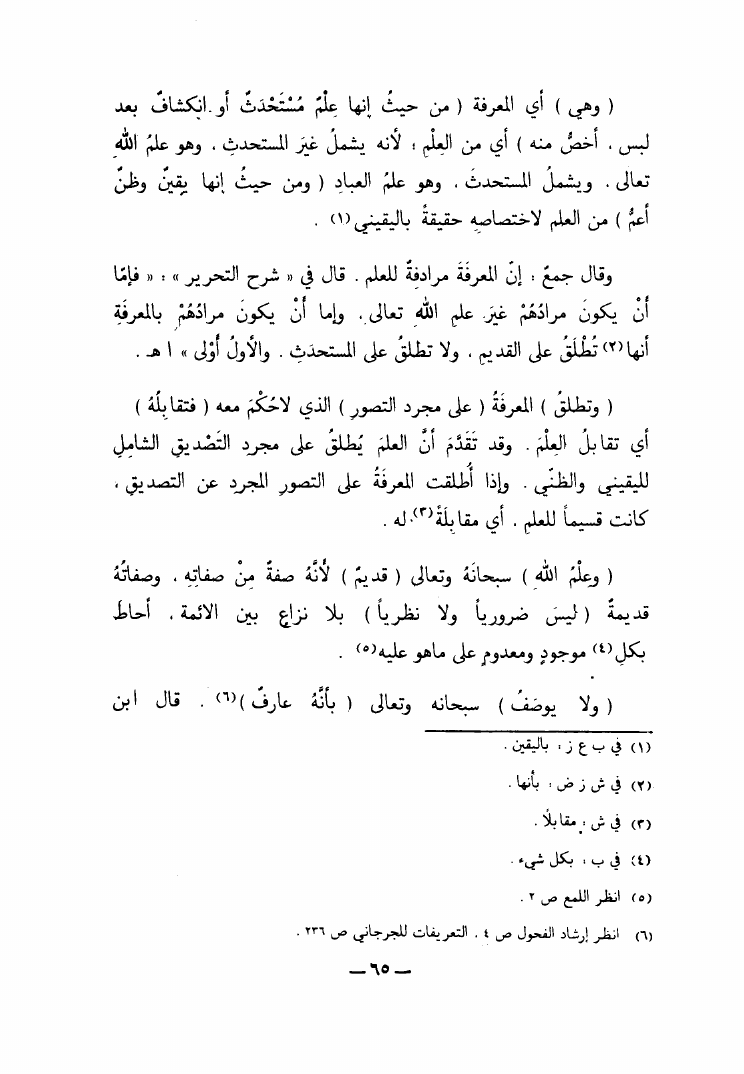 ( وهي ) أي المعرفة ( من حيثُ إنها عِلْمٌ مُسْتَحْدَثٌ أو انكشافٌ بعد
لبس ، أخصُّ منه ) أي من العِلْمِ ؛ لأنه يشملُ غيَر المستحدثِ ، وهو علمُ اللهِ
تعالى ، ويشملُ المستحدثَ ، وهو علمُ العبادِ ( ومن حيثُ إنها يقينٌ وظنٌّ
أعمُّ ) من العلم لاختصاصِه حقيقةً باليقيني (١) .
وقال جمعٌ : إنّ المعرفَةَ مرادفةٌ للعلمِ . قال في « شرح التحرير » : « فإمّا
أنْ يكونَ مرادُهُمْ غيَر علمِ اللهِ تعالى ، وإما أنْ يكونَ مرادُهُمْ بالمعرفَةِ
أنها (٢) تُطْلَقُ على القديمِ ، ولا تطلقُ على المستحدَثِ . والأولُ أَوْلى » ا هـ .
( وتطلقُ ) المعرفةُ ( على مجرد التصورِ ) الذي لاحُكْمَ معه ( فتقابلُهُ )
أي تقابلُ العِلْمَ . وقد تَقَدَّمَ أنَّ العلمَ يُطلقُ على مجردِ التَصْديقِ الشاملِ
لليقيني والظنّي . وإذا أُطلقت المعرفةُ على التصورِ المجردِ عن التصديقِ ،
كانت قسيماً للعلمِ ، أي مقابِلَةً (٣) له .
( وعِلْمُ اللهِ ) سبحانَهُ وتعالى ( قديمٌ ) لأنَّهُ صفةٌ مِنْ صفاتِهِ ، وصفاتُهُ
قديمةٌ ( ليسَ ضرورياً ولا نظرياً ) بلا نزاعٍ بين الائمة ، أحاطَ
بكلِ (٤) موجودٍ ومعدومٍ على ماهو عليه (٥) .
( ولا يوصَفُ ) سبحانه وتعالى ( بأنَّهُ عارفٌ ) (٦) . قال ابن
(١) في ب ع ز : باليقين .
(٢) في ش ز ض : بأنها .
(٣) في ش : مقابلاً .
(٤) في ب : بكل شيء .
(٥) انظر اللمع ص ٢ .
(٦) انظر إرشاد الفحول ص ٤ ، التعريفات للجرجاني ص ٢٣٦ .
— ٦٥ —